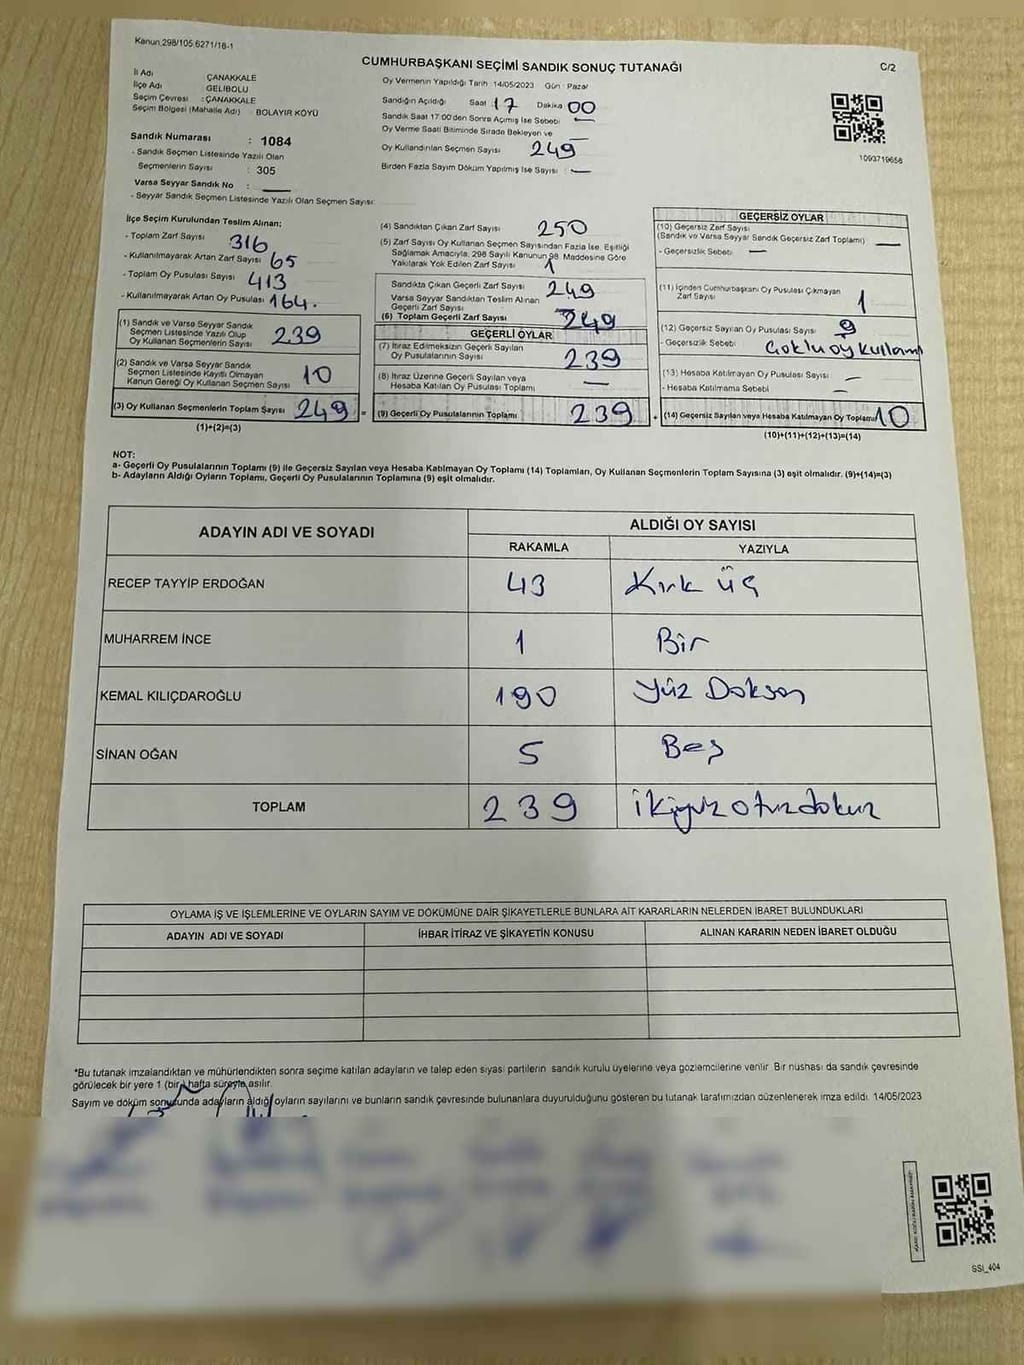 Kanun:298/105:6271/16-1
CUMHURBAŞKANI SEÇİMİ SANDIK SONUÇ TUTANAĞI
C/2
İl Adı : ÇANAKKALE
İlçe Adı : GELİBOLU
Seçim Çevresi : ÇANAKKALE
Seçim Bölgesi (Mahalle Adı) : BOLAYIR KÖYÜ
Sandık Numarası : 1084
- Sandık Seçmen Listesinde Yazılı Olan
Seçmenlerin Sayısı : 305
Varsa Seyyar Sandık No : —
- Seyyar Sandık Seçmen Listesinde Yazılı Olan Seçmen Sayısı:
Oy Vermenin Yapıldığı Tarih :14/05/2023 Gün : Pazar
Sandığın Açıldığı Saat 17 Dakika 00
Sandık Saat 17:00'den Sonra Açılmış İse Sebebi —
Oy Verme Saati Bitiminde Sırada Bekleyen ve —
Oy Kullandırılan Seçmen Sayısı 249
Birden Fazla Sayım Döküm Yapılmış İse Sayısı : —
1093719656
İlçe Seçim Kurulundan Teslim Alınan;
- Toplam Zarf Sayısı 316
- Kullanılmayarak Artan Zarf Sayısı 65
- Toplam Oy Pusulası Sayısı 413
- Kullanılmayarak Artan Oy Pusulası 164.
(1) Sandık ve Varsa Seyyar Sandık
Seçmen Listesinde Yazılı Olup
Oy Kullanan Seçmenlerin Sayısı 239
(2) Sandık ve Varsa Seyyar Sandık
Seçmen Listesinde Kayıtlı Olmayan
Kanun Gereği Oy Kullanan Seçmen Sayısı 10
(3) Oy Kullanan Seçmenlerin Toplam Sayısı 249 =
(1)+(2)=(3)
(4) Sandıktan Çıkan Zarf Sayısı 250
(5) Zarf Sayısı Oy Kullanan Seçmen Sayısından Fazla İse, Eşitliği
Sağlamak Amacıyla, 298 Sayılı Kanunun 98. Maddesine Göre
Yakılarak Yok Edilen Zarf Sayısı 1
Sandıkta Çıkan Geçerli Zarf Sayısı 249
Varsa Seyyar Sandıktan Teslim Alınan
Geçerli Zarf Sayısı
(6) Toplam Geçerli Zarf Sayısı 249
GEÇERLİ OYLAR
(7) İtiraz Edilmeksizin Geçerli Sayılan
Oy Pusulalarının Sayısı 239
(8) İtiraz Üzerine Geçerli Sayılan veya
Hesaba Katılan Oy Pusulası Toplamı —
(9) Geçerli Oy Pusulalarının Toplamı 239
GEÇERSİZ OYLAR
(10) Geçersiz Zarf Sayısı
(Sandık ve Varsa Seyyar Sandık Geçersiz Zarf Toplamı) —
- Geçersizlik Sebebi: —
(11) İçinden Cumhurbaşkanı Oy Pusulası Çıkmayan
Zarf Sayısı 1
(12) Geçersiz Sayılan Oy Pusulası Sayısı 9
- Geçersizlik Sebebi: Çoklu oy kullanı
(13) Hesaba Katılmayan Oy Pusulası Sayısı : —
- Hesaba Katılmama Sebebi —
(14) Geçersiz Sayılan veya Hesaba Katılmayan Oy Toplamı 10
(10)+(11)+(12)+(13)=(14)
NOT:
a- Geçerli Oy Pusulalarının Toplamı (9) ile Geçersiz Sayılan veya Hesaba Katılmayan Oy Toplamı (14) Toplamları, Oy Kullanan Seçmenlerin Toplam Sayısına (3) eşit olmalıdır. (9)+(14)=(3)
b- Adayların Aldığı Oyların Toplamı, Geçerli Oy Pusulalarının Toplamına (9) eşit olmalıdır.
ADAYIN ADI VE SOYADI
ALDIĞI OY SAYISI
RAKAMLA YAZIYLA
RECEP TAYYİP ERDOĞAN 43 Kırk üç
MUHARREM İNCE 1 Bir
KEMAL KILIÇDAROĞLU 190 Yüz Doksan
SİNAN OĞAN 5 Beş
TOPLAM 239 ikiyüz otuzdokuz
OYLAMA İŞ VE İŞLEMLERİNE VE OYLARIN SAYIM VE DÖKÜMÜNE DAİR ŞİKAYETLERLE BUNLARA AİT KARARLARIN NELERDEN İBARET BULUNDUKLARI
ADAYIN ADI VE SOYADI İHBAR İTİRAZ VE ŞİKAYETİN KONUSU ALINAN KARARIN NEDEN İBARET OLDUĞU
*Bu tutanak imzalandıktan ve mühürlendikten sonra seçime katılan adayların ve talep eden siyasi partilerin sandık kurulu üyelerine veya gözlemcilerine verilir. Bir nüshası da sandık çevresinde
görülecek bir yere 1 (bir) hafta süreyle asılır.
Sayım ve döküm sonucunda adayların aldığı oyların sayılarını ve bunların sandık çevresinde bulunanlara duyurulduğunu gösteren bu tutanak tarafımızdan düzenlenerek imza edildi. 14/05/2023
SSI_404